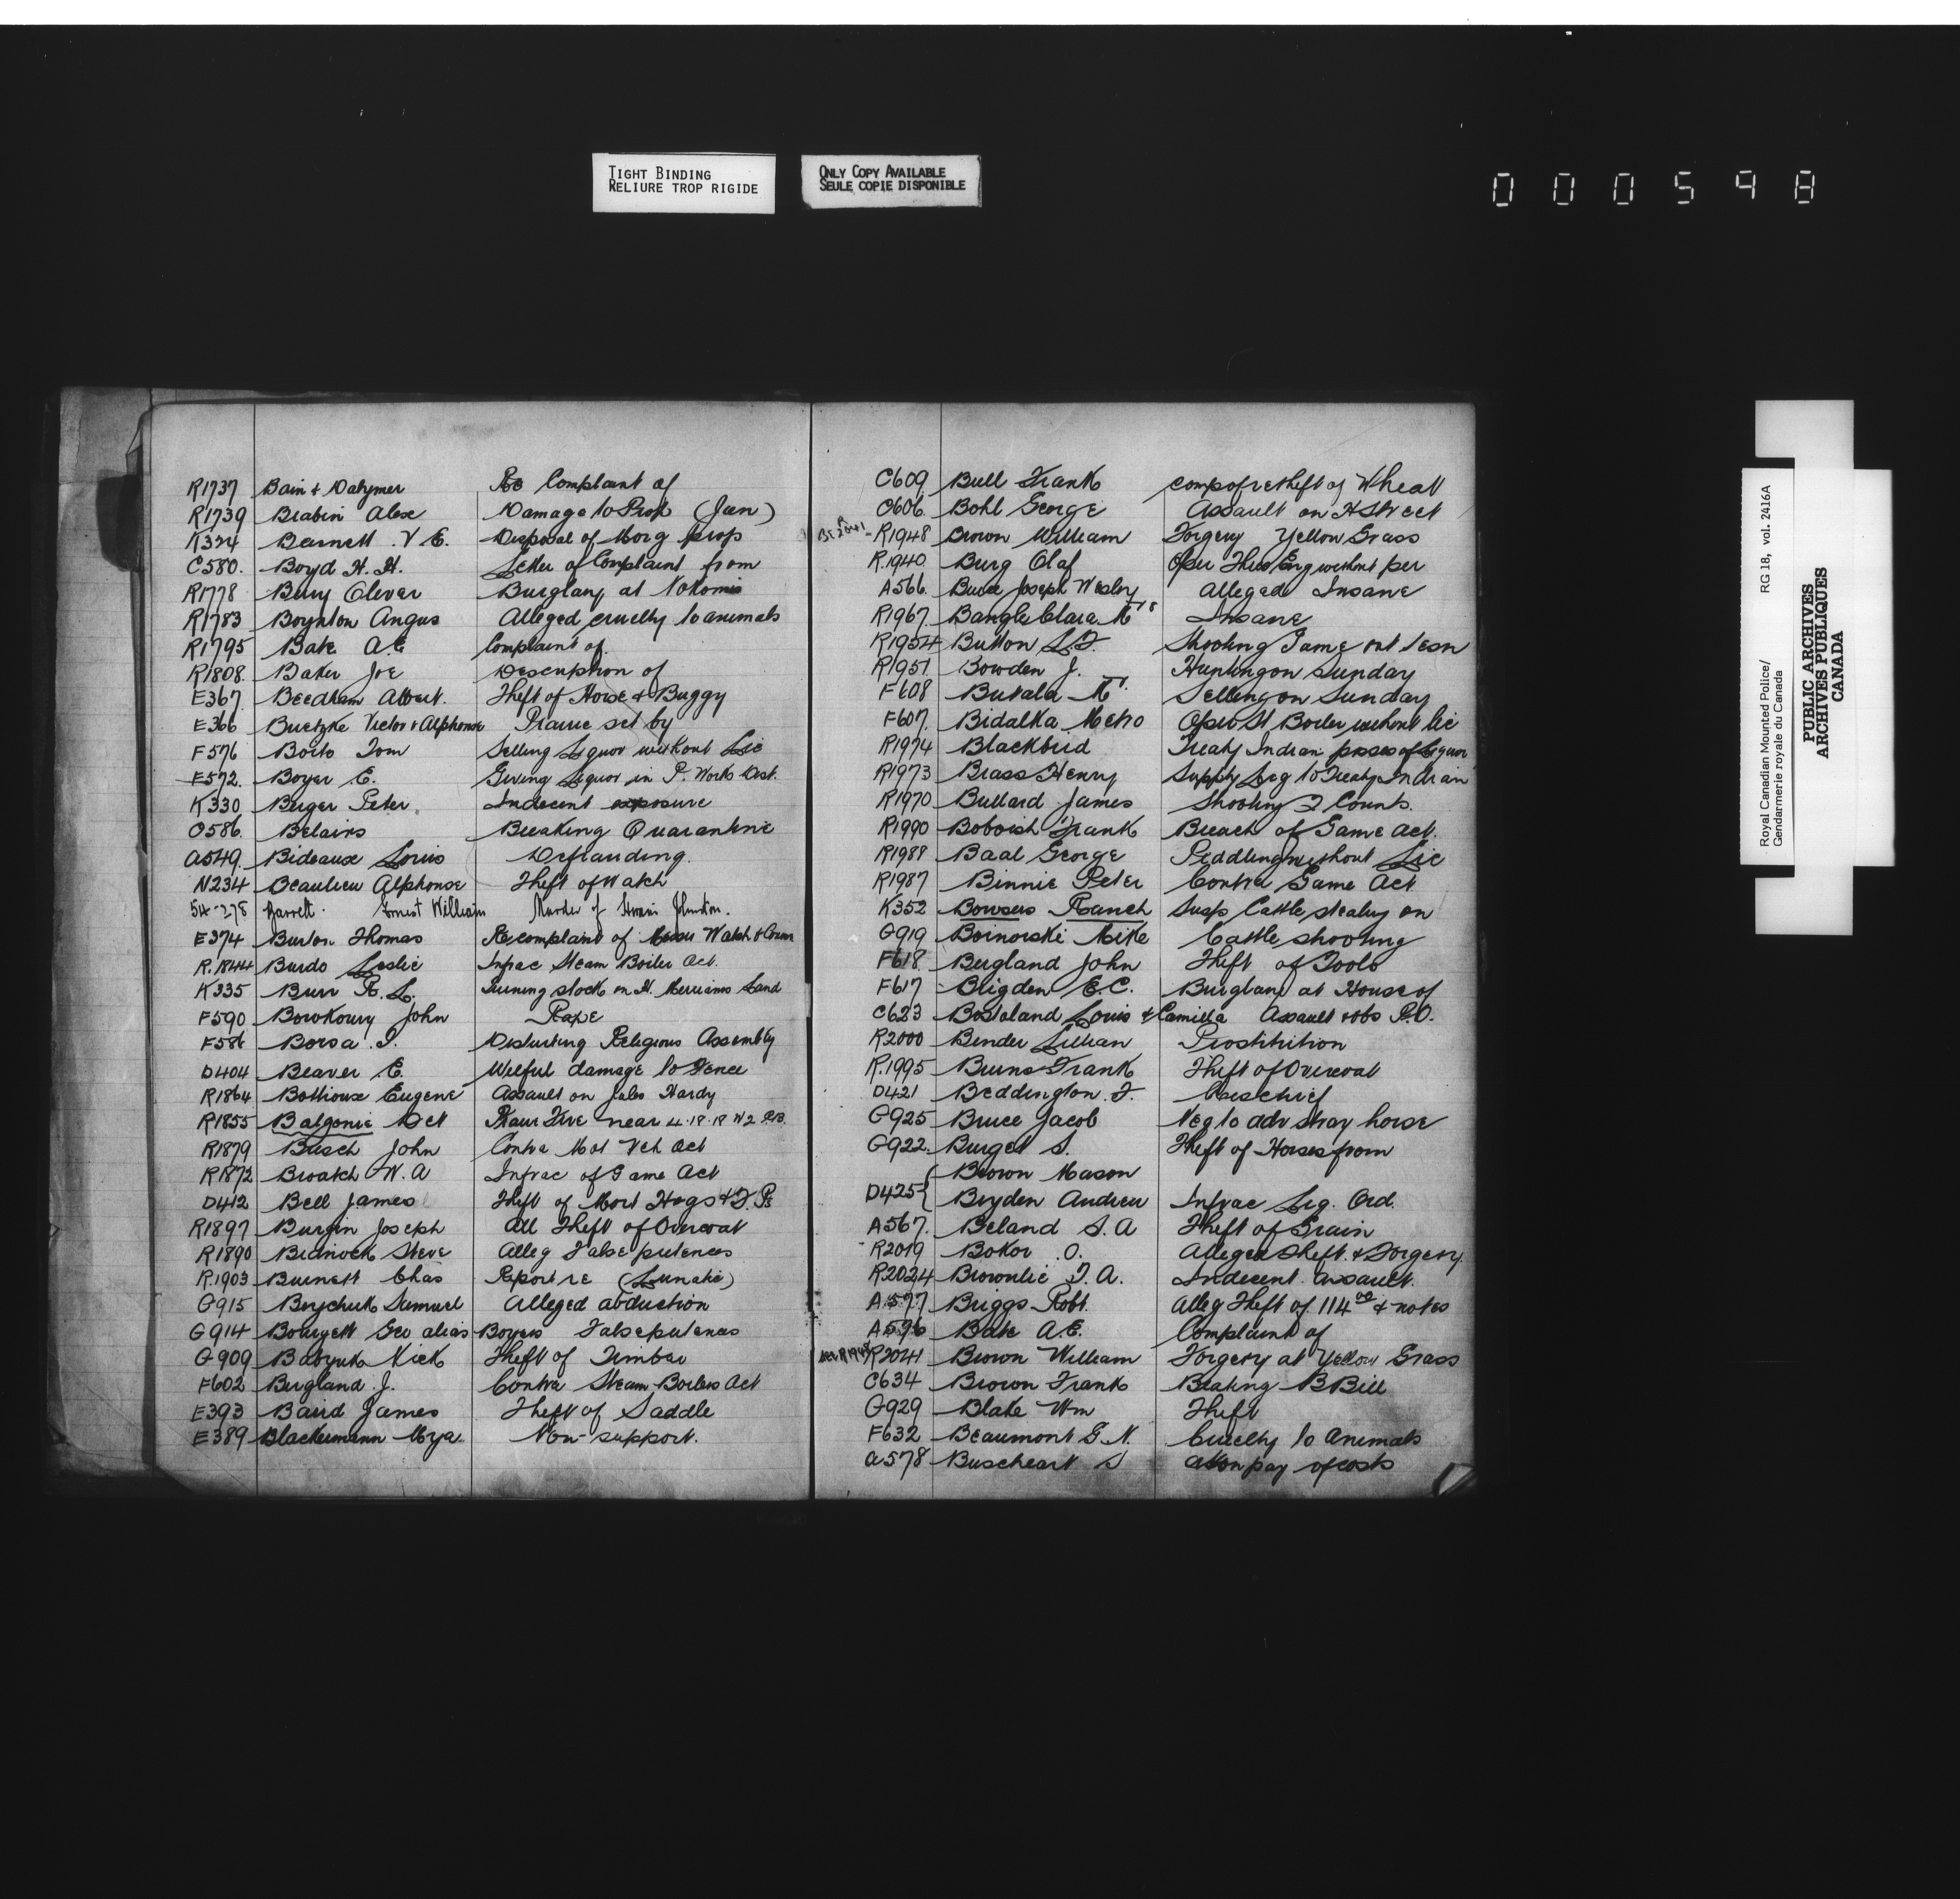 TIGHT BINDING
RELIURE TROP RIGIDE
ONLY COPY AVAILABLE
SEULE COPIE DISPONIBLE
000598
R1737 Bain & Dalymer Re Complaint of
R1739 Brabin Alex Damage to Prop (Jun)
K324 Barnett V E. Disposal of Morg prop
C580. Boyd H. H. Letter of Complaint from
R1778 Bury Oliver Burglary at Nokomis
R1783 Boynton Angus Alleged cruelty to animals
R1795 Bate A.E Complaint of
R1808. Baker Joe Description of
E367. Beedham Albert. Theft of Horse & Buggy
E366 Bretzke Victor & Alphonse Prairie set by
F576 Boito Tom Selling Liquor without Lic
F572. Boyer E. Giving Liquor in P. Works Dist.
K330 Berger Peter. Indecent exposure
O586. Belairs Breaking Quarantine
A549. Bideaux Louis Defrauding.
N234 Beaulieu Alphonse Theft of Watch
54-278 Barrett. Ernest William Murder of Johnston.
E374 Burton Thomas Re complaint of Walsh &
R.1844 Burds Leslie Infrac Steam Boiler Act.
K335 Burr R. L. Running stock on H. Merriams Land
F590 Bowkowy John Rape
F586 Borsa . Disturbing Religious Assembly
D404 Beaver E. Wilful damage to Fence
R1864 Bothioux Eugene Assault on Jules Hardy
R1855 Balgonie Det Prair Fire near 4.18.18 W2 P.B.
R1879 Busch John Contra Mot Veh Act
R1872 Broatch W. A Infrac of Game Act
D412 Bell James Theft of Mort Hogs & F. Ps
R1897 Burgin Joseph All Theft of Overcoat
R1890 Bidnock Steve Alleg False pretences
R.1903 Burnett Chas Report re (Lunatic)
G915 Berychuk Samuel Alleged abduction
G914 Bourgett Geo alias Boyers False pretences
G.909 Babyuk Nick Theft of Timber
F602 Bergland J. Contra Steam Boilers Act
E393 Baird James Theft of Saddle
E389 Blackermann Mya. Non-support.
C609 Bull Frank comp of re theft of Wheat
C606. Bohl George Assault on H Street
R2041 R1948 Brown William Forgery Yellow Grass
R.1940. Burg Olaf Oper Thres Eng without per
A566. Bruce Joseph Wesley Alleged Insane
R1967. Bangle Clara Mrs Insane
R1954 Button L.F. Shooting Game out seasn
R1951. Bowden J. Hunting on Sunday
F608 Butala Mr. Selling on Sunday
F607. Bidalka Metro Oper St Boiler without lic
R1974 Blackbird Treaty Indian posses of Liquor
R1973 Brass Henry Supply Liq to Treaty Indian
R1970 Bullard James Shooting 2 Counts.
R1990 Boboish Frank Breach of Game Act.
R1988 Baal George Peddling without Lic
R1987 Binnie Peter Contra Game Act
K352 Bowsers Ranch Susp Cattle stealing on
G919 Boinorski Mike Cattle shooting
F618. Bergland John Theft of Tools
F617 Bligden E.C. Burglary at House of
C623 Bostoland Louis & Camilla Assault & obs P.O.
R2000 Bender Lillian Prostitution
R.1995 Burns Frank Theft of Overcoat
D421 Beddington. F. Mischief
G925 Bruce Jacob Neg to adv stray horse
G922. Burget S. Theft of Horses from
Brown Mason
D425 Bryden Andrew Infrac Liq. Ord.
A567. Beland S. A Theft of Grain
R2019 Bokor O. Alleged theft & Forgery
R2024 Brownlie F. A. Indecent assault.
A577 Briggs Robt. Alleg Theft of 114 00 & notes
A576 Bate A.E. Complaint of
See R1948 R2041 Brown William Forgery at Yellow Grass
C634 Brown Frank Beating B Bill
G929 Blake Wm Theft
F632 Beaumont G N. Cruelty to Animals
A578 Buscheart S pay of costs
Royal Canadian Mounted Police/ RG 18, vol. 2416A
Gendarmerie royale du Canada
PUBLIC ARCHIVES
ARCHIVES PUBLIQUES
CANADA